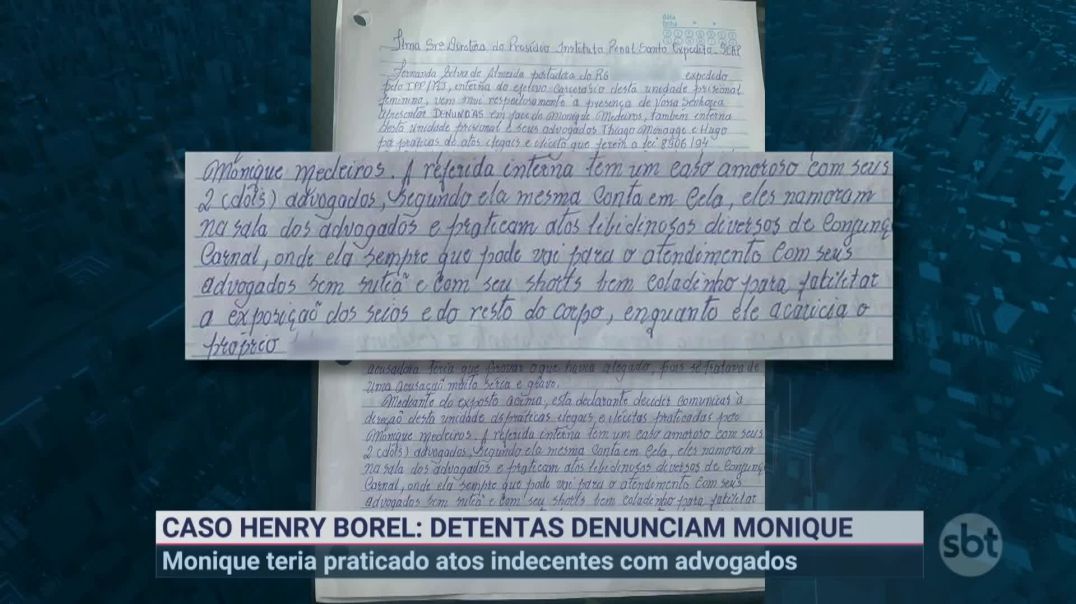 data
Ilma Srª Diretora do Presídio Instituto Penal Santo Expedito - SEAP
Fernanda Silva de Almeida portadora do RG expedido
pelo IPP/RJ, interna do efetivo carcerário desta unidade prisional
feminina, vem mui respeitosamente a presença de Vossa Senhoria
Apresentar DENÚNCIAS em face de Monique Medeiros, também interna
desta unidade prisional e seus advogados Thiago Minagge e Hugo
práticas de atos ilegais e ilícito que ferem a lei 8906/94
Monique medeiros. A referida interna tem um caso amoroso com seus
2 (dois) advogados, segundo ela mesma conta em cela, eles namoram
na sala dos advogados e praticam atos libidinosos diversos de conjunç
carnal, onde ela sempre que pode vai para o atendimento com seus
advogados sem sutiã e com seu shorts bem coladinho para facilitar
a exposição dos seios e do resto do corpo, enquanto ele acaricia o
próprio
acusadora teria que provar o que havia alegado, pois se tratava de
uma acusação muito séria e grave.
Mediante do exposto acima, esta declarante decidiu comunicar à
direção desta unidade as práticas ilegais e ilícitas praticadas pela
Monique medeiros. A referida interna tem um caso amoroso com seus
2 (dois) advogados, segundo ela mesma conta em cela, eles namoram
na sala dos advogados e praticam atos libidinosos diversos de conjunç
carnal, onde ela sempre que pode vai para o atendimento com seus
advogados sem sutiã e com seu shorts bem coladinho para facilitar
CASO HENRY BOREL: DETENTAS DENUNCIAM MONIQUE
Monique teria praticado atos indecentes com advogados
sbt